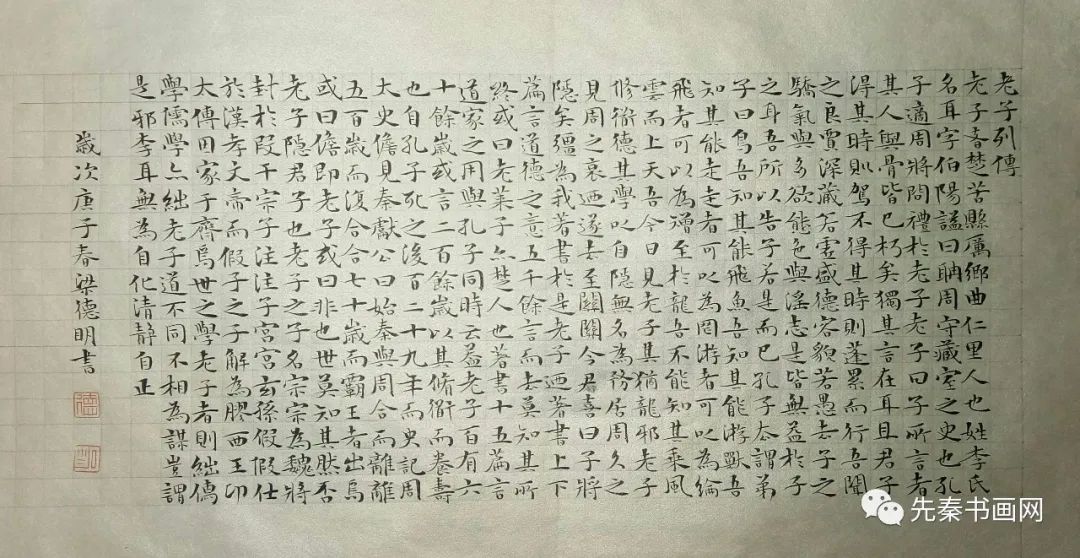 老子列傳
老子者楚苦縣厲鄉曲仁里人也姓李氏
名耳字伯陽謚曰聃周守藏室之史也孔
子適周將問禮於老子老子曰子所言者
其人與骨皆已朽矣獨其言在耳且君子
得其時則駕不得其時則蓬累而行吾聞
之良賈深藏若虛盛德容貌若愚去子之
驕氣與多欲態色與淫志是皆無益於子
之身吾所以告子若是而已孔子去謂弟
子曰鳥吾知其能飛魚吾知其能游獸吾
知其能走走者可以為罔游者可以為綸
飛者可以為矰至於龍吾不能知其乘風
雲而上天吾今日見老子其猶龍邪老子
修道德其學以自隱無名為務居周久之
見周之衰迺遂去至關關令尹喜曰子將
隱矣彊為我著書於是老子迺著書上下
篇言道德之意五千餘言而去莫知其所
終或曰老萊子亦楚人也著書十五篇言
道家之用與孔子同時云蓋老子百有六
十餘歲或言二百餘歲以其脩道而養壽
也自孔子死之後百二十九年而史記周
大史儋見秦獻公曰始秦與周合而離離
五百歲而復合合七十歲而霸王者出焉
或曰儋即老子或曰非也世莫知其然否
老子隱君子也老子之子名宗宗為魏將
封於段干宗子注注子宮宮玄孫假假仕
於漢孝文帝而假之子解為膠西王卬
大傅因家于齊焉世之學老子者則絀儒
學儒學亦絀老子道不同不相為謀豈謂
是邪李耳無為自化清靜自正
歲次庚子春梁德明書
德
明
先秦书画网